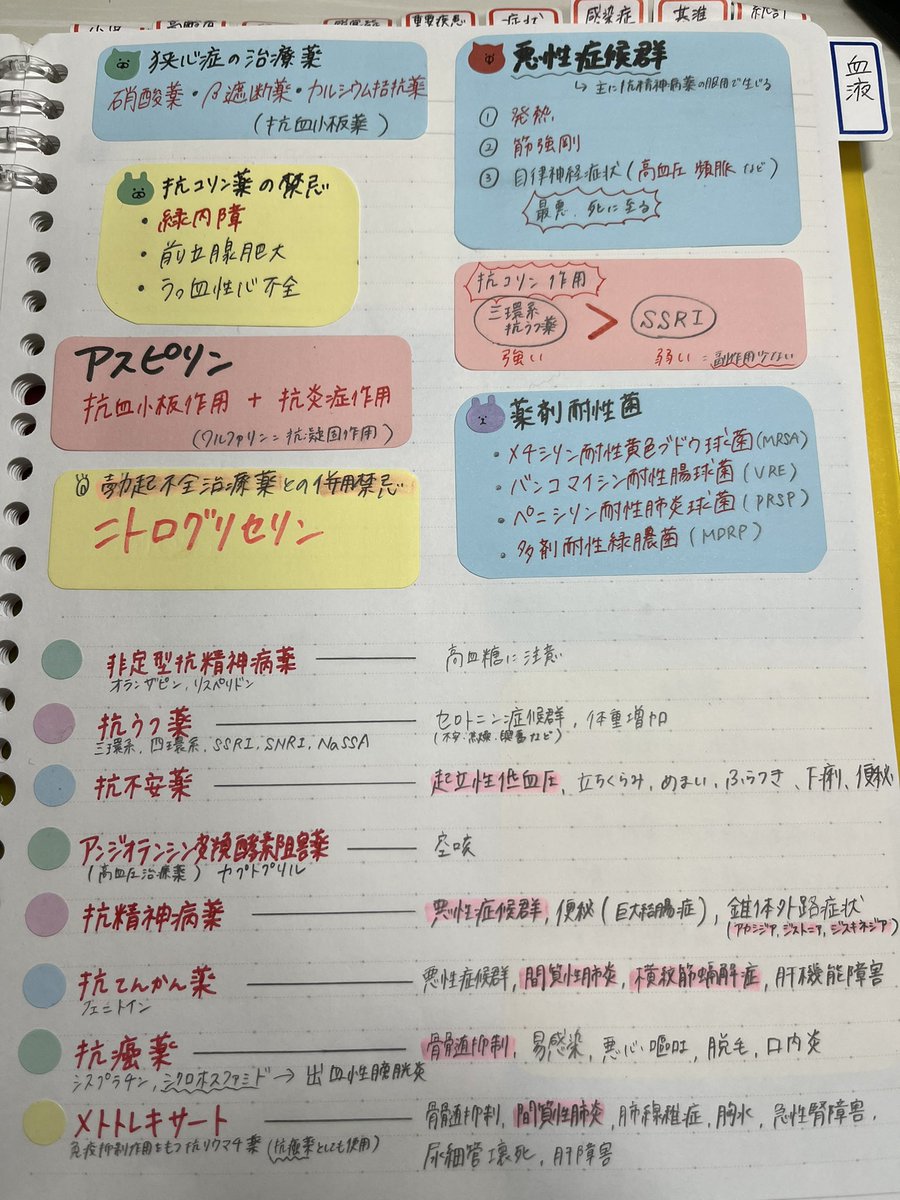 重要疾患
症状
感染症
共進
統計
血液
狭心症の治療薬
硝酸薬・β遮断薬・カルシウム拮抗薬
(抗血小板薬)
悪性症候群
↳ 主に抗精神病薬の服用で生じる
① 発熱
② 筋強剛
③ 自律神経症状(高血圧 頻脈 など)
最悪、死に至る
抗コリン薬の禁忌
・緑内障
・前立腺肥大
・うっ血性心不全
抗コリン作用
三環系
抗うつ薬
>
SSRI
強い
弱い=副作用少ない
アスピリン
抗血小板作用 + 抗炎症作用
(ワルファリン:抗凝固作用)
勃起不全治療薬との併用禁忌
ニトログリセリン
薬剤耐性菌
・メチシリン耐性黄色ブドウ球菌(MRSA)
・バンコマイシン耐性腸球菌(VRE)
・ペニシリン耐性肺炎球菌(PRSP)
・多剤耐性緑膿菌(MDRP)
非定型抗精神病薬 ― 高血糖に注意
オランザピン、リスペリドン
抗うつ薬 ― セロトニン症候群、体重増加
三環系、四環系、SSRI、SNRI、NaSSA
(不安・焦燥・興奮など)
抗不安薬 ― 起立性低血圧、立ちくらみ、めまい、ふらつき、下痢、便秘
アンジオテンシン変換酵素阻害薬 ― 空咳
(高血圧治療薬) カプトプリル
抗精神病薬 ― 悪性症候群、便秘(巨大結腸症)、錐体外路症状
(アカシジア、ジストニア、ジスキネジア)
抗てんかん薬 ― 悪性症候群、間質性肺炎、横紋筋融解症、肝機能障害
フェニトイン
抗癌薬 ― 骨髄抑制、易感染、悪心・嘔吐、脱毛、口内炎
シスプラチン、シクロホスファミド→出血性膀胱炎
メトトレキサート ― 骨髄抑制、間質性肺炎、肺線維症、胸水、急性腎障害、
免疫抑制作用をもつ抗リウマチ薬(抗癌薬としても使用)
尿細管壊死、肝障害